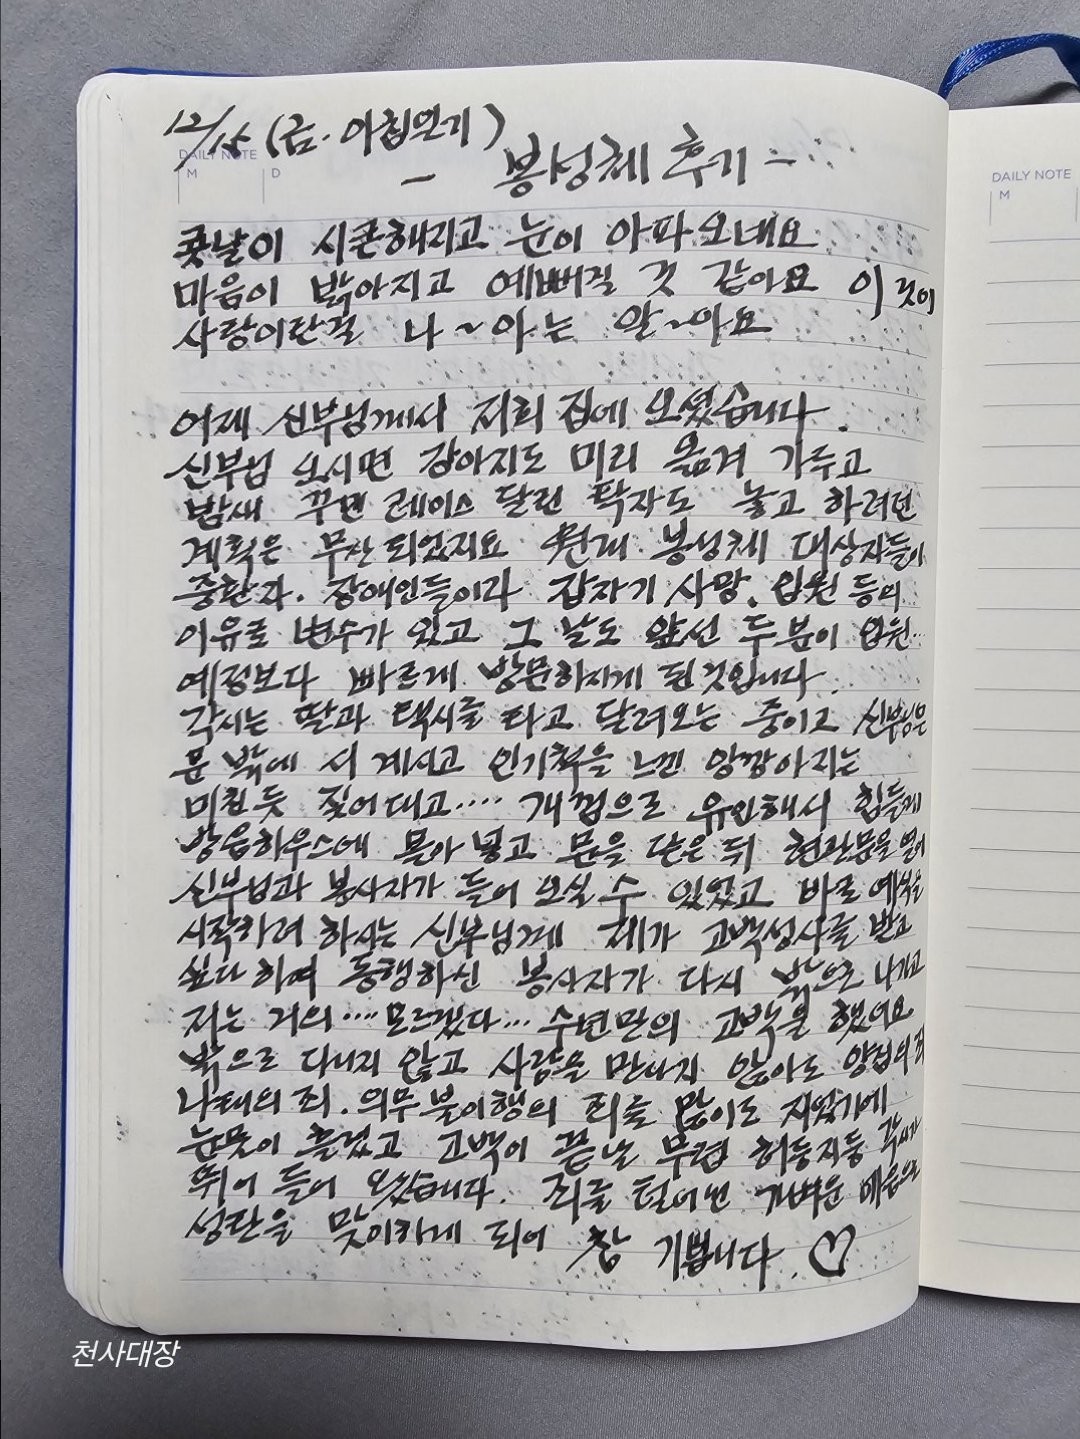 12/15 (금. 아침일기)
DAILY NOTE
M D
- 봉성체 후기 -
콧날이 시큰해지고 눈이 아파오네요
마음이 밝아지고 예뻐질 것 같아요 이것이
사랑이란걸 나~아는 알~아요
어제 신부님께서 저희 집에 오셨습니다.
신부님 오시면 강아지도 미리 옮겨 가두고
밤새 꾸민 레이스 달린 탁자도 놓고 하려던
계획은 무산되었지요 원래 봉성체 대상자들이
중환자. 장애인들이라 갑자기 사망. 입원 등의
이유로 변수가 있고 그 날도 앞선 두분이 입원..
예정보다 빠르게 방문하시게 된것입니다.
각시는 딸과 택시를 타고 달려오는 중이고 신부님은
문 밖에 서 계시고 인기척을 느낀 앙깡아지는
미친듯 짖어대고.... 개껌으로 유인해서 힘들게
방음하우스에 몰아 넣고 문을 닫은 뒤 현관문을 열어
신부님과 봉사자가 들어 오실 수 있었고 바로 예식을
시작하려 하시는 신부님께 제가 고백성사를 받고
싶다 하여 동행하신 봉사자가 다시 밖으로 나가고
저는 거의.... 모르겠다... 수년만의 고백을 했어요
밖으로 다니지 않고 사람을 만나지 않아도 양심의 죄
나태의 죄. 의무 불이행의 죄를 많이도 지었기에
눈물이 흘렀고 고백이 끝날 무렵 허둥지둥 각시가
뛰어 들어 왔습니다. 죄를 털어낸 가벼운 마음으로
성탄을 맞이하게 되어 참 기쁩니다. ♡
천사대장
DAILY NOTE
M